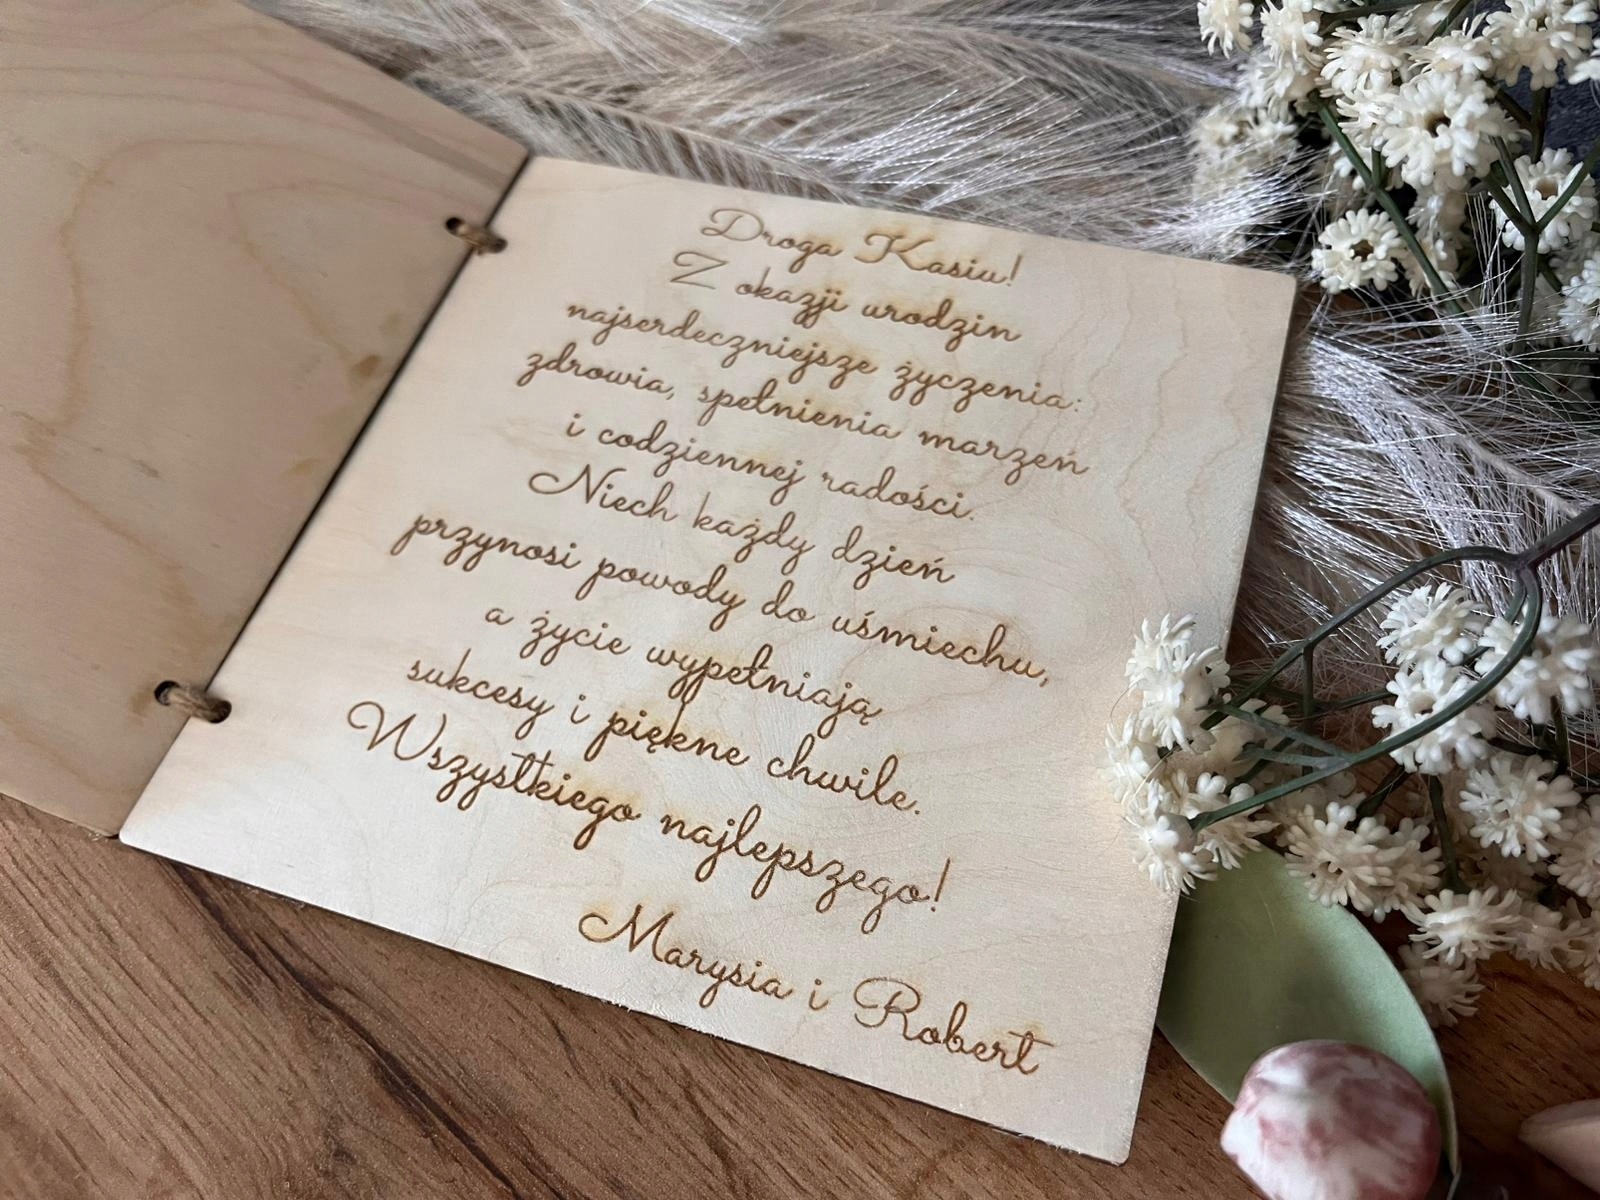 Droga Kasiu!
Z okazji urodzin
najserdeczniejsze życzenia:
zdrowia, spełnienia marzeń
i codziennej radości.
Niech każdy dzień
przynosi powody do uśmiechu,
a życie wypełniają
sukcesy i piękne chwile.
Wszystkiego najlepszego!
Marysia i Robert